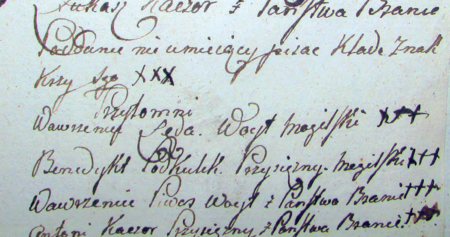 Łukasz Kaczor z Państwa Branic
Poddani nie umieiący pisac Kładą Znak
Krzy XXX
Przytomni
Wawrzeniec Woyt Mogilski +++
Benedykt Podkulek. Przysiężny. Mogilski +++
Wawrzeniec Woyt z Państwa Branic +++
Antoni Kaczor Przysiężny z Państwa Branic. +++